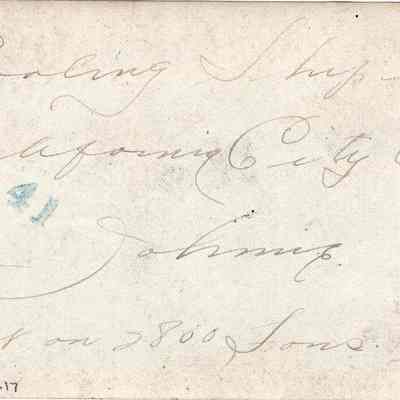 ooling Ship
alifornia City C
41
Johnie.
on 2800 Tons.
.17